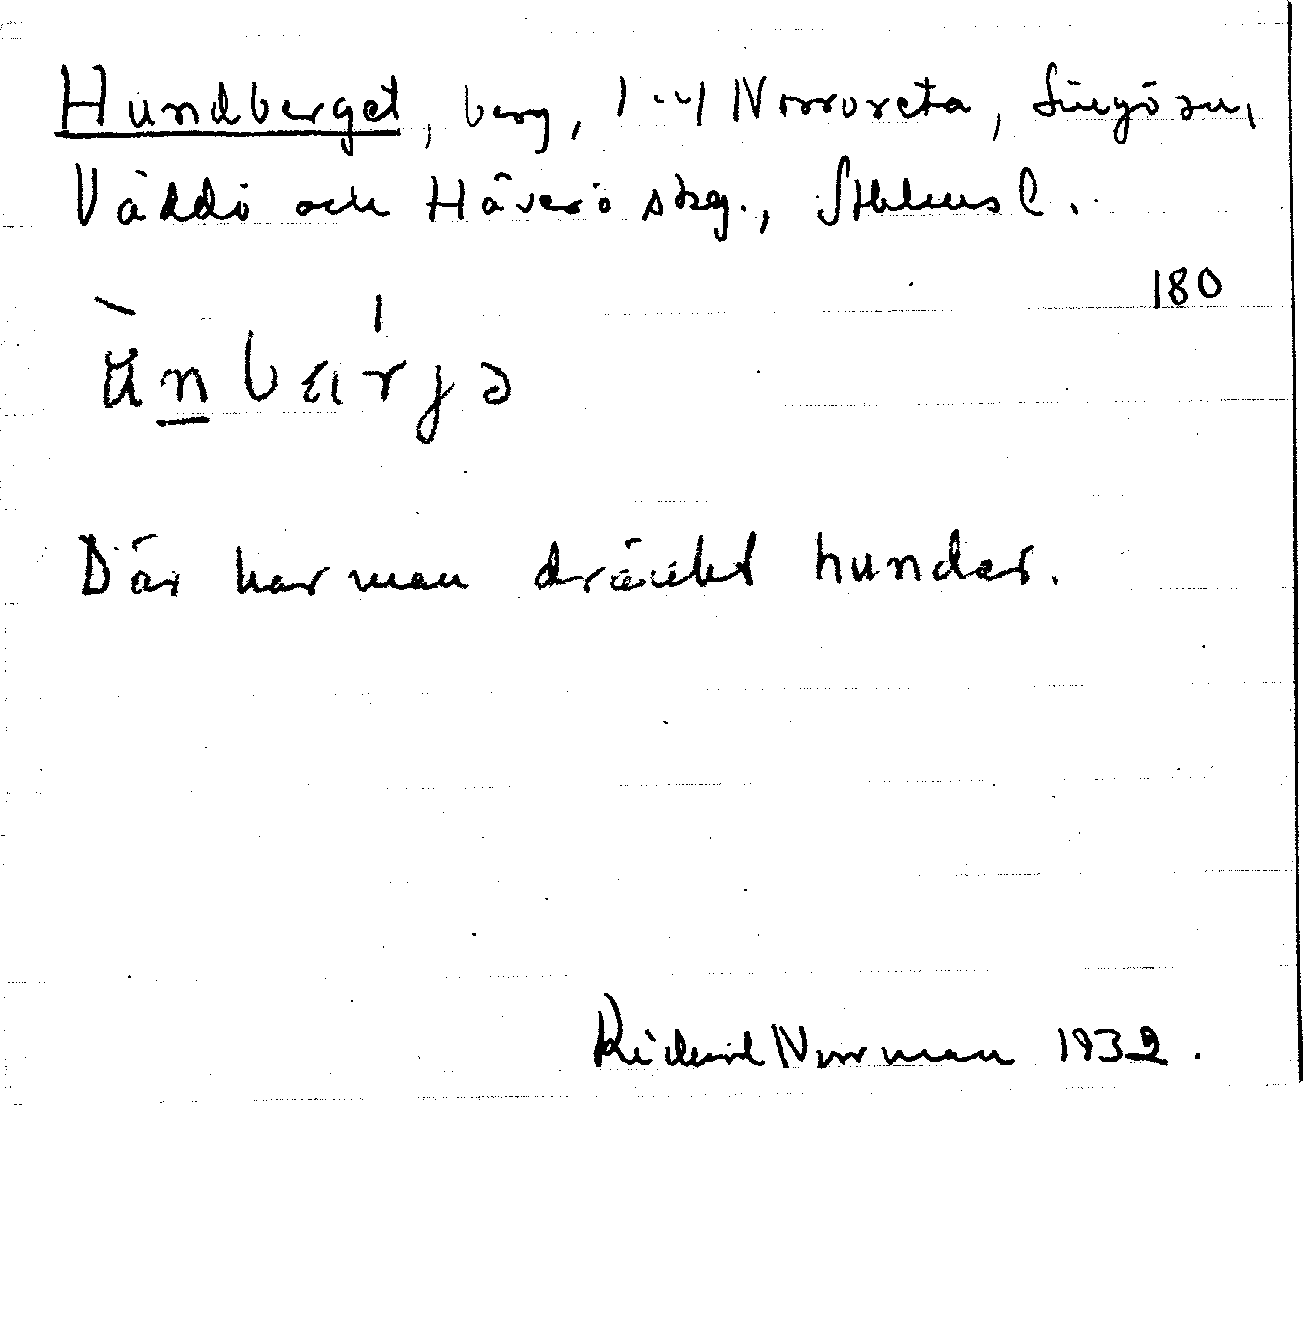 Hundberget, berg, 1-4 Norrveta, Singö sn,
Väddö och Häverö skg., Sthlms l.
180
Där har man dränkt hundar.
Rickard Norrman 1932.